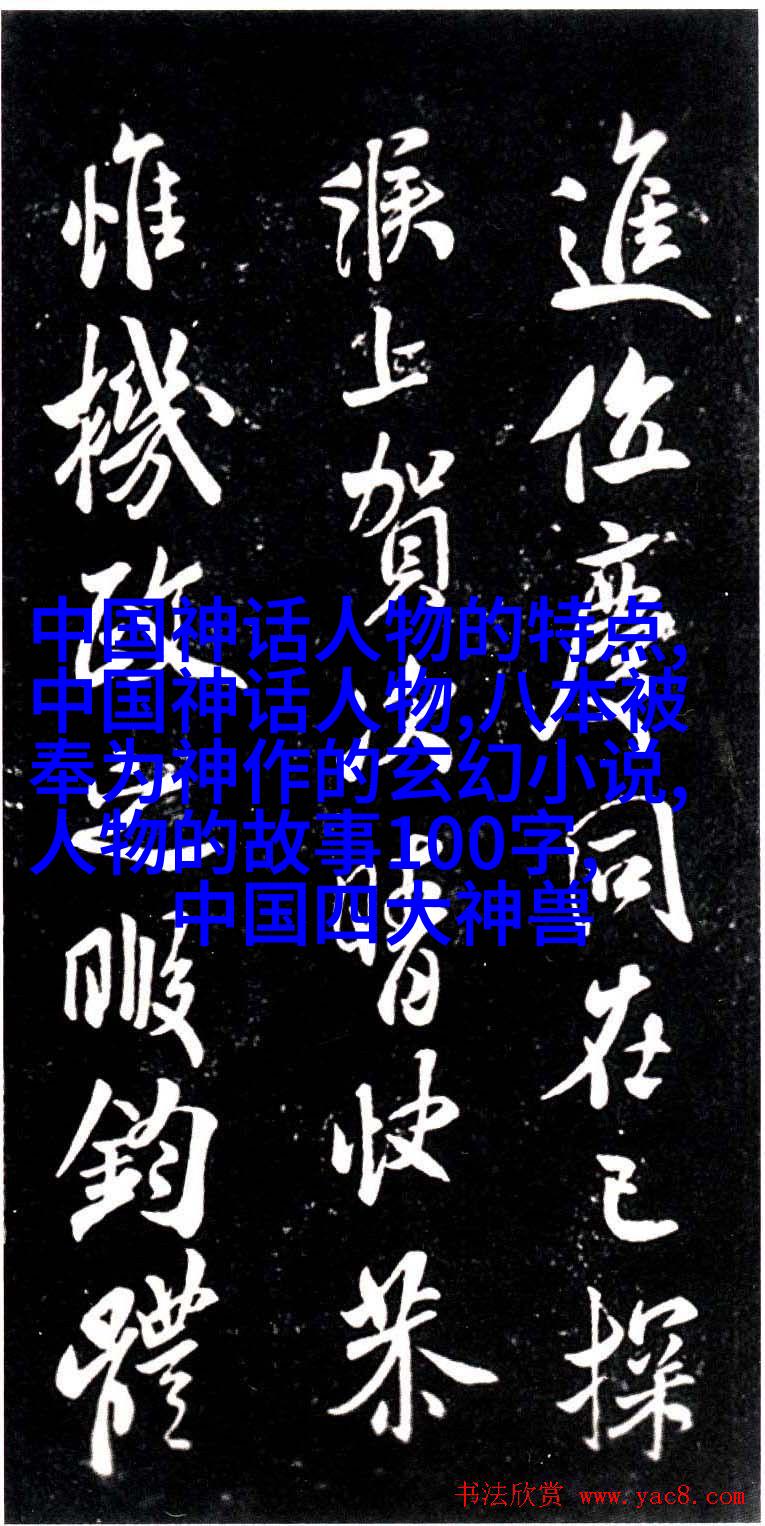 進位慶同在己探
候上賀次晴快恭
惟機政之暇鈞體
中国神话人物的特点,
中国神话人物,八本被
奉为神作的玄幻小说,
人物的故事100字,
中国四大神兽
书法欣赏 www.yac8.com